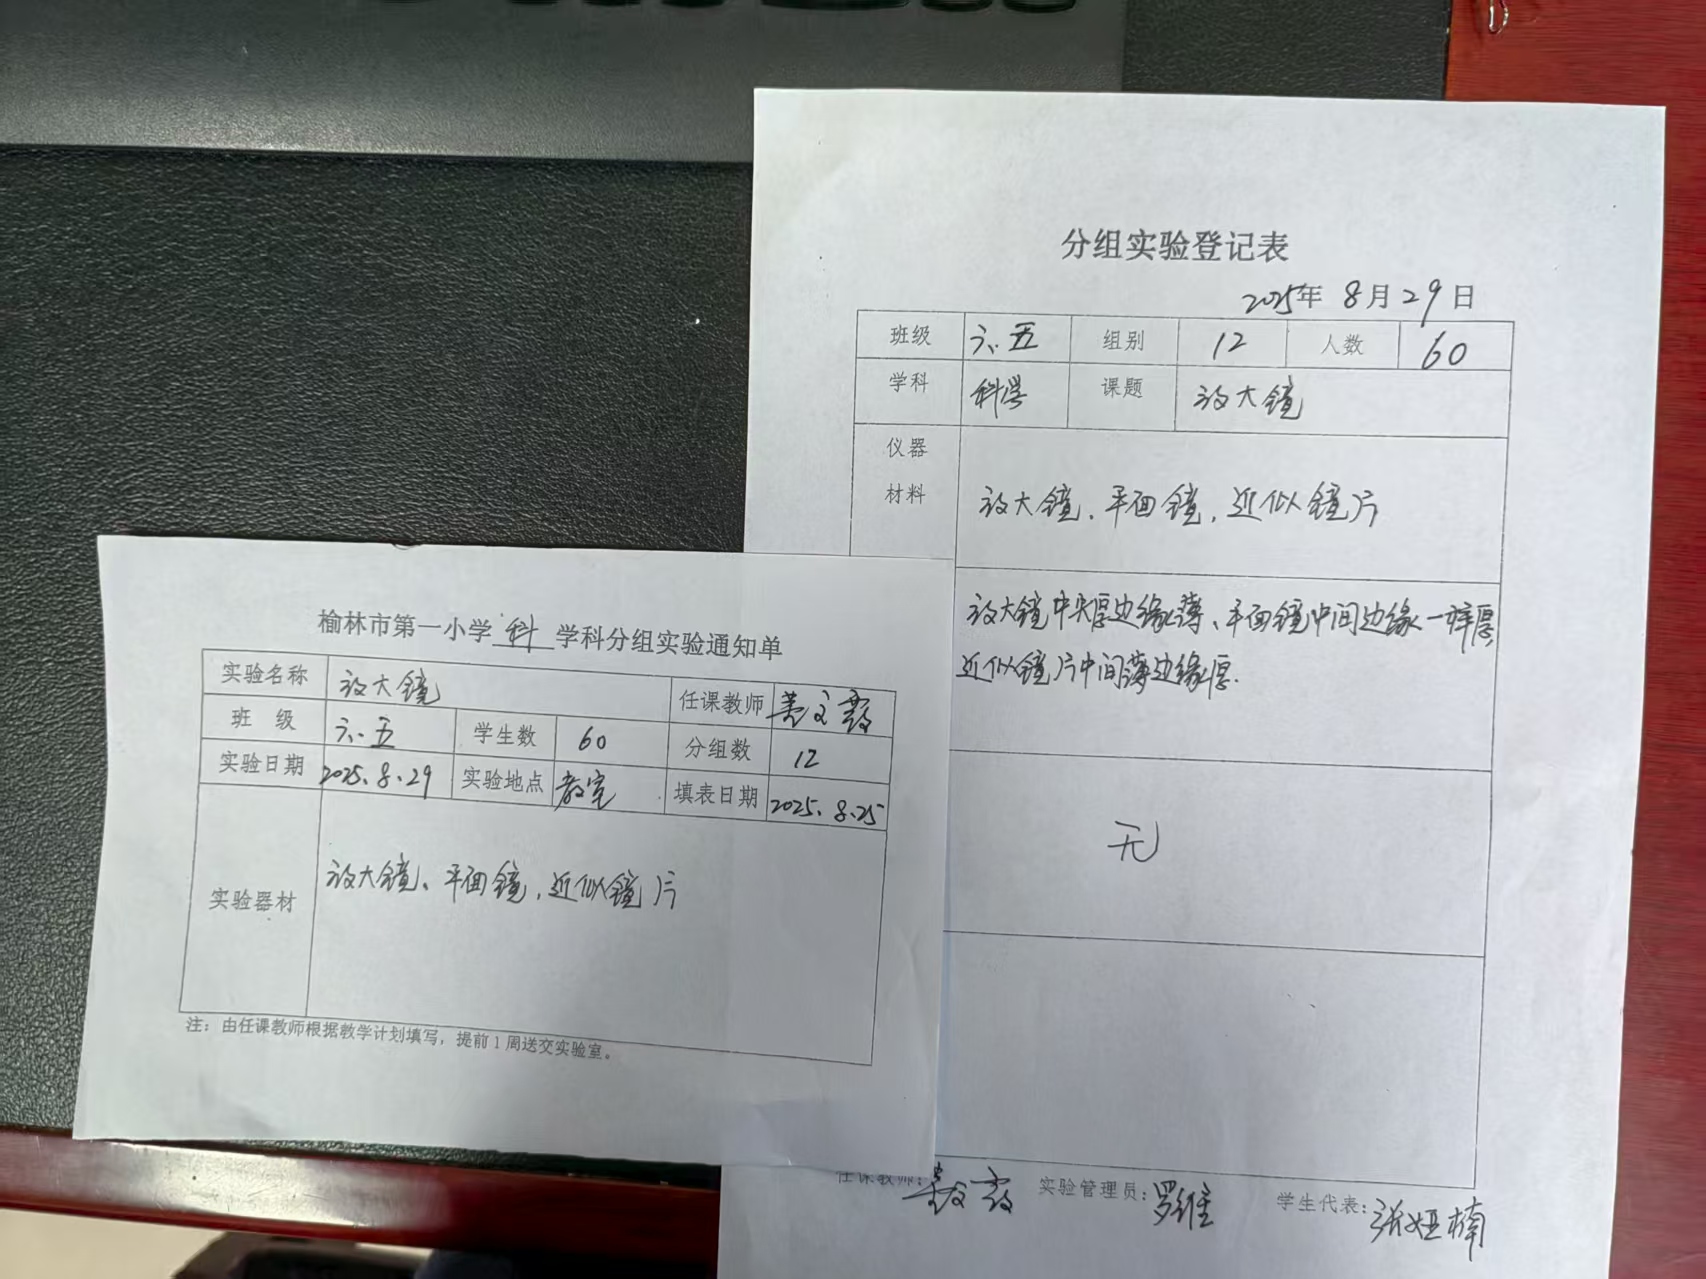 分组实验登记表
2025年 8月29日
班级 六.五 组别 12 人数 60
学科 科学 课题 放大镜
仪器
材料
放大镜、平面镜,近似镜片
放大镜中央厚边缘薄、平面镜中间边缘一样厚
近似镜片中间薄边缘厚.
无
任课教师: 实验管理员:罗维 学生代表:张娅楠
榆林市第一小学 科 学科分组实验通知单
实验名称 放大镜 任课教师
班 级 六.五 学生数 60 分组数 12
实验日期 2025.8.29 实验地点 教室 填表日期 2025.8.25
实验器材 放大镜、平面镜,近似镜片
注:由任课教师根据教学计划填写,提前1周送交实验室。